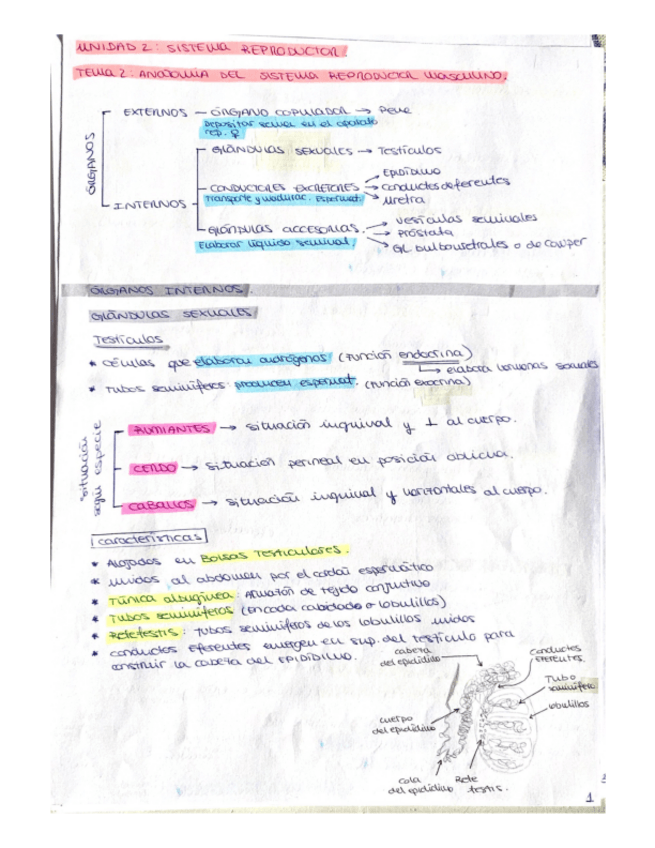 UNIDAD 2: SISTEMA REPRODUCTOR.
TEMA 2: ANATOMÍA DEL SISTEMA REPRODUCTOR MASCULINO.
ÓRGANOS
EXTERNOS — ÓRGANO COPULADOR → Pene
Depositar semen en el aparato
rep. ♀
INTERNOS
GLÁNDULAS SEXUALES → Testículos
CONDUCTORES EXCRETORES → Epidídimo
→ conductos deferentes
→ uretra
Transporte y madurac. Espermat.
GLÁNDULAS ACCESORIAS. → vesículas seminales
→ próstata
→ GL. bulbouretrales o de cowper
Elaborar líquido seminal.
ÓRGANOS INTERNOS.
GLÁNDULAS SEXUALES
Testículos
* células que elaboran andrógenos (función endocrina)
↳ elabora hormonas sexuales
* Tubos seminíferos: producen espermat. (función exocrina)
situación
según especie
RUMIANTES → situación inguinal y ⊥ al cuerpo.
CERDO → situación perineal en posición oblicua.
CABALLOS → situación inguinal y horizontales al cuerpo.
características
* Alojados en Bolsas Testiculares.
* unidos al abdomen por el cordón espermático
* Túnica albugínea: armazón de tejido conjuntivo
* Tubos seminíferos (en cada cabidad o lobulillos)
* Rete testis: tubos seminíferos de los lobulillos unidos
* conductos eferentes emergen en sup. del testículo para
construir la cabeza del EPIDÍDIMO.
cabeza
del epidídimo
conductos
eferentes.
Tubo
seminífero
lobulillos
cuerpo
del epidídimo
cola
del epidídimo
Rete
testis.
1